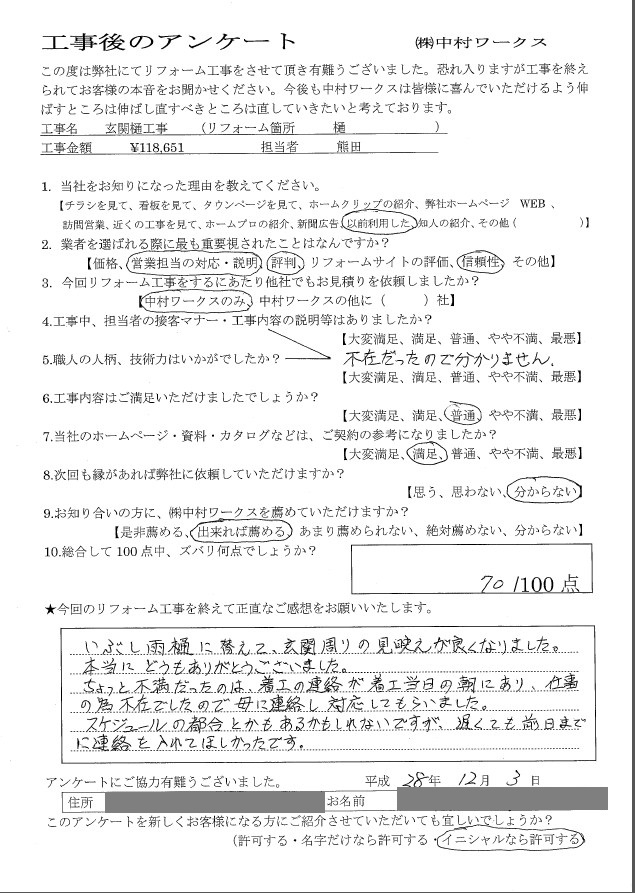 工事後のアンケート ㈱中村ワークス
この度は弊社にてリフォーム工事をさせて頂き有難うございました。恐れ入りますが工事を終え
られてお客様の本音をお聞かせください。今後も中村ワークスは皆様に喜んでいただけるよう伸
ばすところは伸ばし直すべきところは直していきたいと考えております。
工事名 玄関樋工事 (リフォーム箇所 樋 )
工事金額 ¥118,651 担当者 熊田
1. 当社をお知りになった理由を教えてください。
【チラシを見て、看板を見て、タウンページを見て、ホームクリップの紹介、弊社ホームページ WEB 、
訪問営業、近くの工事を見て、ホームプロの紹介、新聞広告、以前利用した、知人の紹介、その他 ( )】
2. 業者を選ばれる際に最も重要視されたことはなんですか？
【価格、営業担当の対応・説明、評判、リフォームサイトの評価、信頼性、その他】
3. 今回リフォーム工事をするにあたり他社でもお見積りを依頼しましたか？
【中村ワークスのみ、中村ワークスの他に ( ) 社】
4.工事中、担当者の接客マナー・工事内容の説明等はありましたか？
【大変満足、満足、普通、やや不満、最悪】
5.職人の人柄、技術力はいかがでしたか？ 不在だったので分かりません。
【大変満足、満足、普通、やや不満、最悪】
6.工事内容はご満足いただけましたでしょうか？
【大変満足、満足、普通、やや不満、最悪】
7.当社のホームページ・資料・カタログなどは、ご契約の参考になりましたか？
【大変満足、満足、普通、やや不満、最悪】
8.次回も縁があれば弊社に依頼していただけますか？
【思う、思わない、分からない】
9.お知り合いの方に、㈱中村ワークスを薦めていただけますか？
【是非薦める、出来れば薦める、あまり薦められない、絶対薦めない、分からない】
10.総合して 100 点中、ズバリ何点でしょうか？
70 /100 点
★今回のリフォーム工事を終えて正直なご感想をお願いいたします。
いぶし雨樋に替えて、玄関周りの見映えが良くなりました。
本当にどうもありがとうございました。
ちょっと不満だったのは、着工の連絡が着工当日の朝にあり、仕事
の為不在でしたので母に連絡し対応してもらいました。
スケジュールの都合とかもあるかもしれないですが、遅くても前日まで
に連絡を入れてほしかったです。
アンケートにご協力有難うございました。 平成 28 年 12 月 3 日
住所 お名前
このアンケートを新しくお客様になる方にご紹介させていただいても宜しいでしょうか？
(許可する・名字だけなら許可する・イニシャルなら許可する)